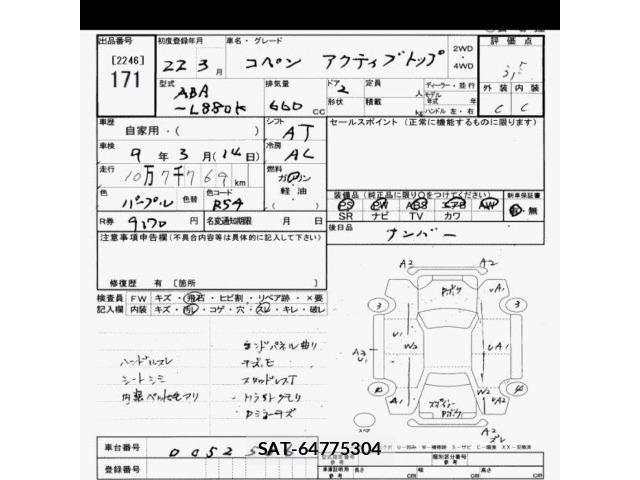 出品番号
[2246]
171
初度登録年月
22 3 月
車名・グレード
コペン アクティブトップ
2WD
・
4WD
評価点
3.5
外装 内装
C C
型式
ABA
-L880K
排気量
660 CC
ドア 2
形状
定員 人
積載 kg
ディーラー・並行
モデル
年式 年
ハンドル 左・右
車歴
自家用・( )
シフト
AT
セールスポイント (正常に機能するものに限ります)
車検
9 年 3 月(14日)
冷房
AC
走行
10万7千769 km
燃料
ガソリン
軽油
色
パープル
色替
色コード
R54
装備品(純正品に限り○をつけてください)
PS PW ABS エアB AW
SR ナビ TV カワ
新車保証書
有・無
R券 9170 円
名変通知期限 月 日
後日品
ナンバー
注意事項申告欄(不具合内容等は具体的に記入して下さい)
修復歴 有 [箇所 ]
検査員 FW キズ・飛石・ヒビ割・リペア跡・×要
記入欄 内装 キズ・汚レ・コゲ・穴・スレ・キレ・破レ
ハンドルスレ
シートシミ
内張ペット毛アリ
エンドパネル曲り
下廻サビ
スタッドレスT
ヘッドライトクモリ
A2 A2
Pボウ
A1
3 3
U1
A3
W2
UA1
4 4
A1
W2
UA2
Pボウ
スペア
A2
スレ
車台番号
登録番号
SAT-64775304
型式指定番号
参考
類別区分番号
参考
車庫証明用
参考
長さ cm
幅 cm
高さ cm